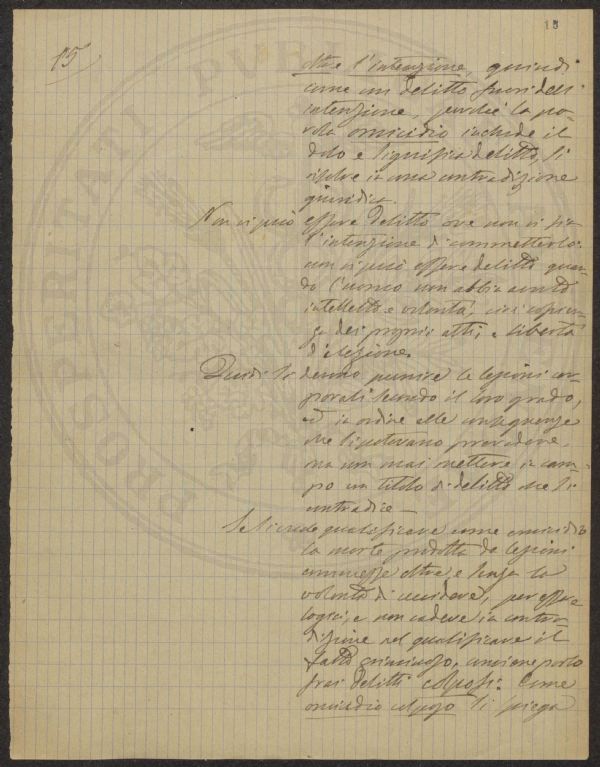 15
15
oltre l'intenzione, quindi
come un delitto fuori dell'
intenzione, perché la pa-
rola omicidio include il
dolo e significa delitto, si
risolve in una contradizione
giuridica.
Non vi può essere delitto ove non vi sia
l'intenzione di commetterlo:
non vi può essere delitto quan-
do l'uomo non abbia avuto
intelletto e volontà, cioè coscien-
za dei proprii atti, e libertà
d'elezione.
Quindi si devono punire le lesioni cor-
porali secondo il loro grado,
ed in ordine alle conseguenze
che si potevano prevedere,
ma non mai mettere in cam-
po un titolo di delitto che si
contradice —
Se si crede qualificare come omicidio
la morte prodotta da lesioni
commesse oltre e senza la
volontà di uccidere, per essere
logici, e non cadere in contra-
dizione nel qualificare il
fatto criminoso, conviene porlo
frai delitti colposi. Come
omicidio colposo si piega
PROSPERITATI PUBL